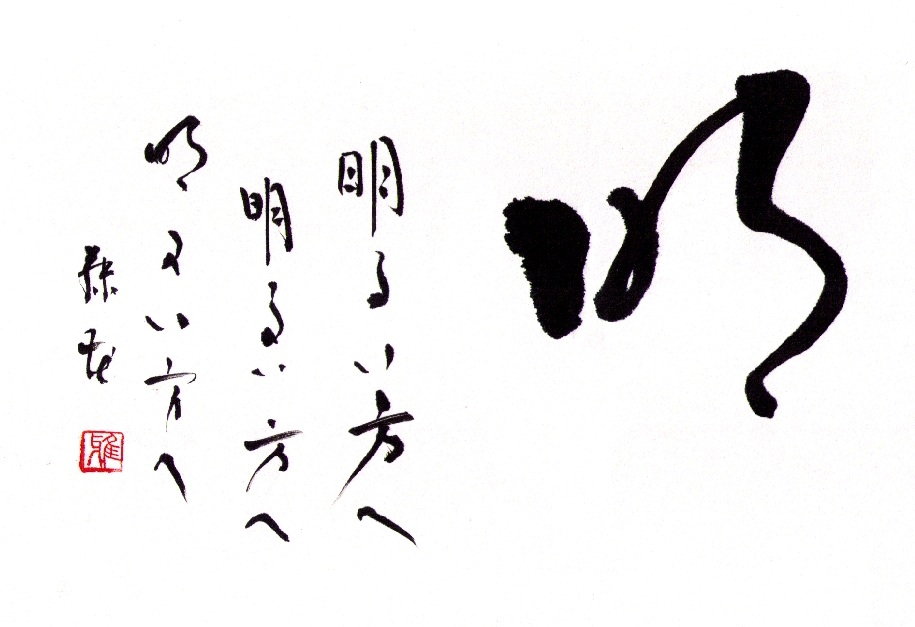 明
明るい方へ
明るい方へ
明るい方へ